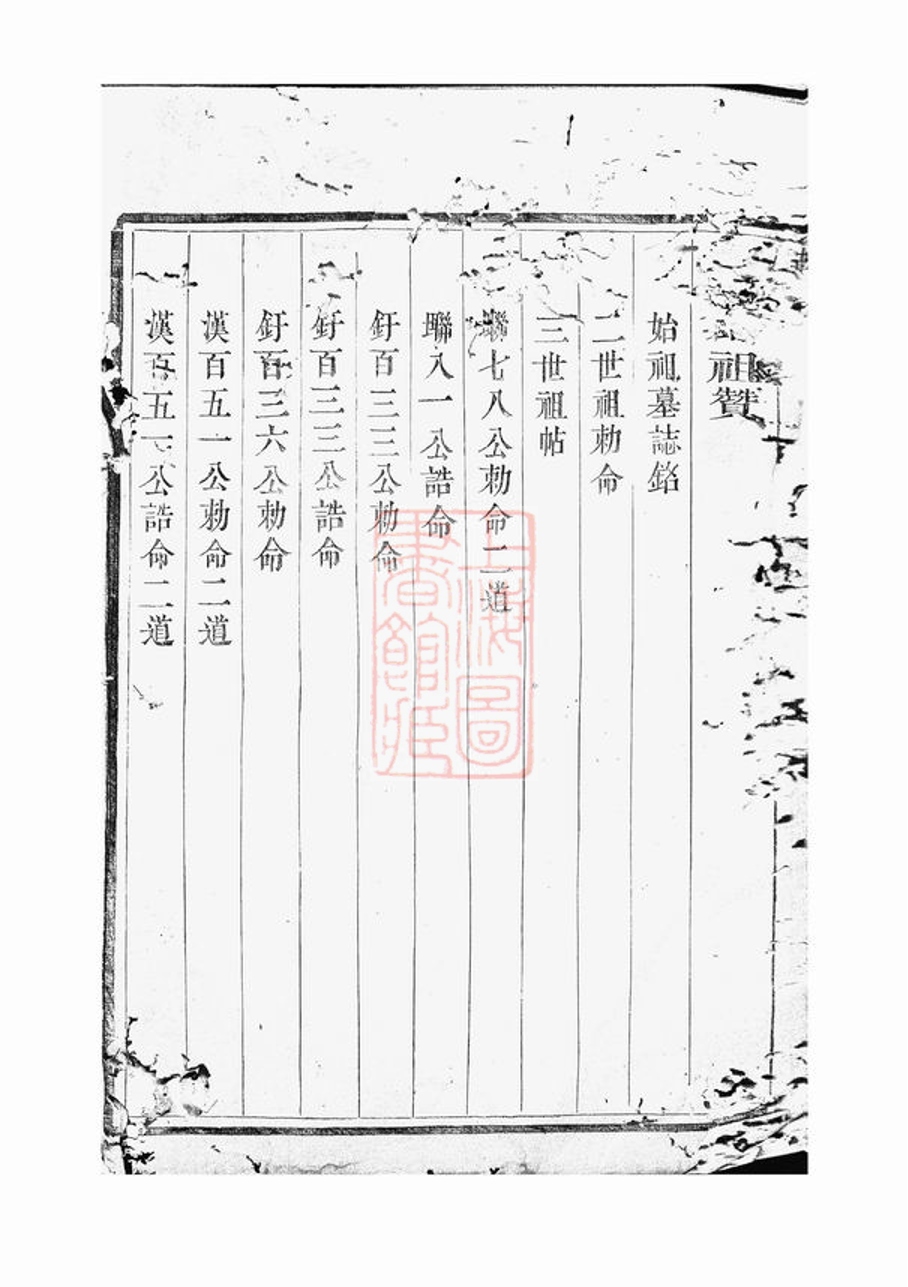 祖贊
始祖墓誌銘
二世祖勅命
三世祖帖
聯七八公勅命二道
聯八一公誥命
釪百三三公勅命
釪百三三公誥命
釪百三六公勅命
漢百五一公勅命二道
漢百五一公誥命二道
上海圖
書館藏